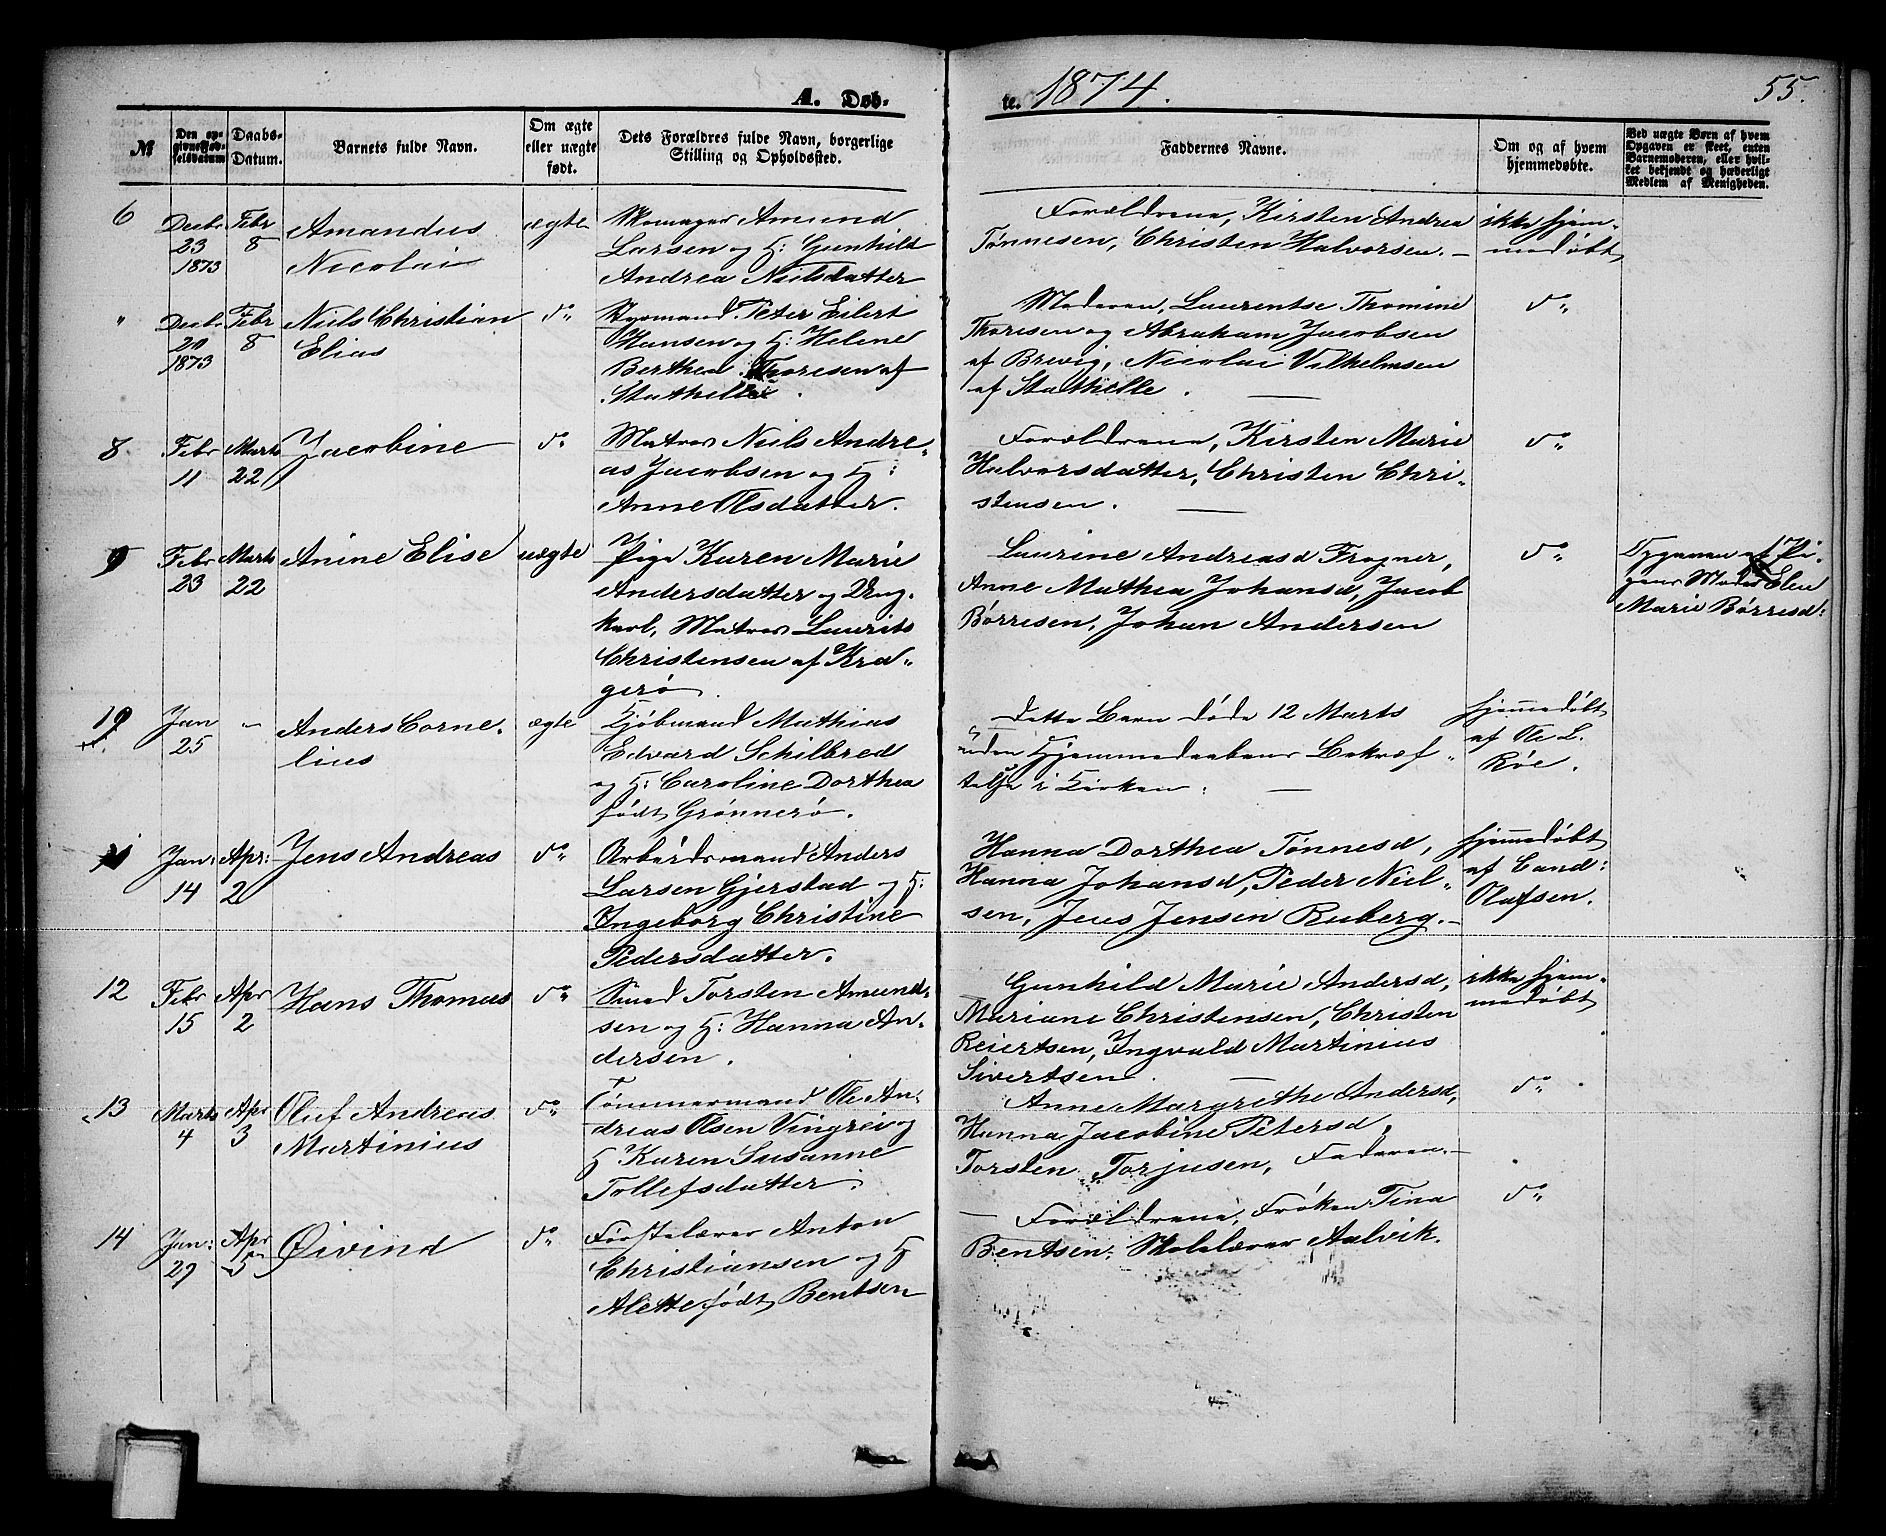 A. Døb-
te. 1874. 55.
№
Den op-
givne Fød-
selsdatum
Daabs-
Datum.
Barnets fulde Navn.
Om ægte
eller uægte
født.
Dets Forældres fulde Navn, borgerlige
Stilling og Opholdssted.
Faddernes Navne.
Om og af hvem
hjemmedøbte.
Ved uægte Børn af hvem
Opgaven er skeet, enten
Barnemoderen, eller hvil-
ket bekjendt og hæderligt
Medlem af Menigheden.
6
Decbr
23
1873
Febr
8
Amandus
Nicolai
ægte
Skomager Amund
Larsen og H: Gunhild
Andrea Nielsdatter
Forældrene, Kirsten Andrea
Tønnesen, Christen Halvorsen. –
ikke hjem-
medøbt
"
Decbr
20
1873
Febr
8
Niels Christian
Elias
do
Peter Eilert
Hansen og H: Helene
Berthea Thoresen af
Stathelle.
Moderen, Laurentse Thomine
Thoresen og Abraham Jacobsen
af Brevig, Nicolai Vilhelmsen
af Stathelle.
do
8
Febr
11
Marts
22
Jacobine
do
Matros Niels Andre-
as Jacobsen og H:
Anne Olsdatter.
Forældrene, Kirsten Marie
Halvorsdatter, Christen Chri-
stensen.
do
9
Febr
23
Marts
22
Anine Elise
uægte
Pige Karen Marie
Andersdatter og Ung-
karl, Matros Laurits
Christensen af Kra-
gerø
Laurine Andreasd Frogner,
Anne Mathea Johansd, Jacob
Børresen, Johan Andersen
do
Opgaven af Pi-
gens Moder Elen
Marie Børresd:
10
Jan
25
"
Anders Corne-
lius
ægte
Kjøbmand Mathias
Edvard Schilbred
og H: Caroline Dorthea
født Grønnerø.
Dette Barn døde 12 Marts
uden Hjemmedaabens Bekræf-
telse i Kirken.
hjemmedøbt
af Ole L.
Røe.
11
Jan:
14
Apr:
2
Jens Andreas
do
Arbeidsmand Anders
Larsen Gjerstad og H:
Ingeborg Christine
Pedersdatter.
Hanna Dorthea Tønnesd,
Hanna Johansd, Peder Niel-
sen, Jens Jensen Ruberg. –
hjemmedøbt
af Cand:
Olafsen.
12
Febr
15
Apr
2
Hans Thomas
do
Smed Torsten Amund-
sen og H: Hanna An-
dersen.
Gunhild Marie Andersd,
Mariane Christensen, Christen
Reiertsen, Ingvald Martinius
Sivertsen.
ikke hjem-
medøbt
13
Marts
4
Apr
3
Oluf Andreas
Martinius
do
Tømmermand Ole An-
dreas Olsen Vingrei og
H Karen Susanne
Tollefsdatter.
Anne Margrethe Andersd,
Hanna Jacobine Petersd,
Torsten Torjusen, Faderen. –
do
14
Jan:
29
Apr
5
Øivind
do
Førstelærer Anton
Christiansen og H
Alette født Bentsen
Forældrene, Frøken Tina
Bentsen, Skolelærer Aalvik.
do